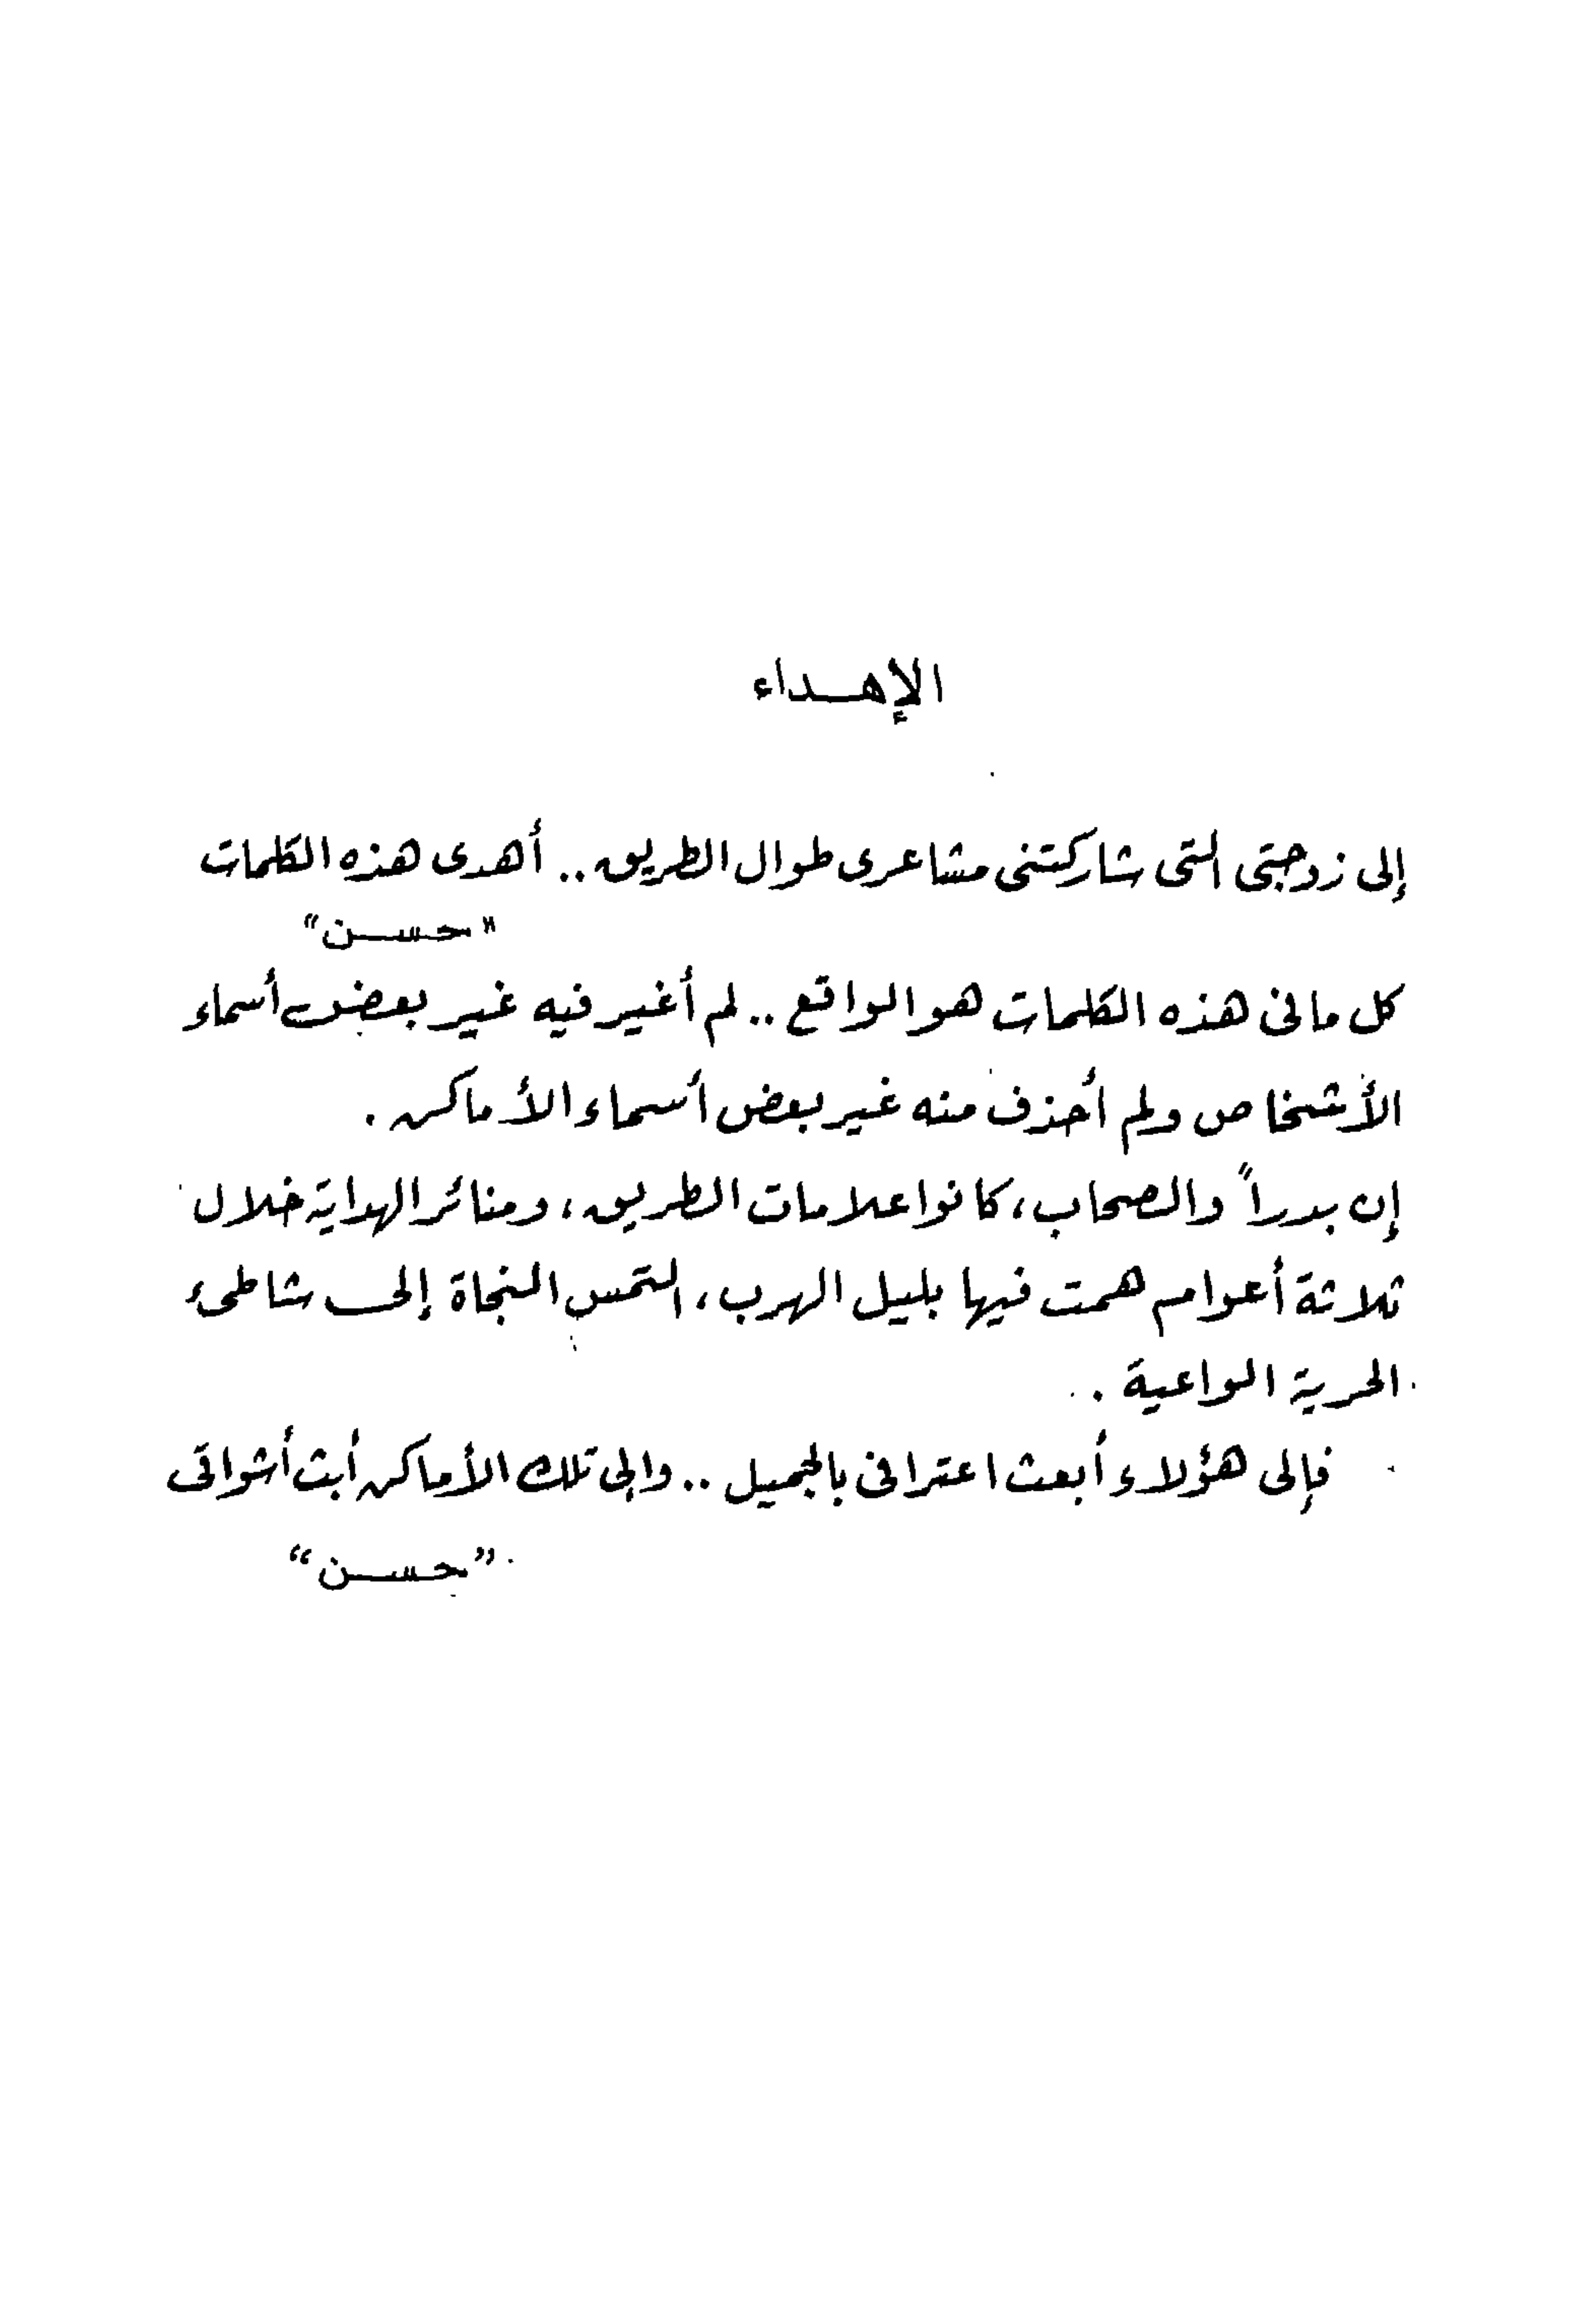 الإهداء
إلى زوجتى التى شاركتنى مشاعرى طوال الطريق .. أهدى هذه الكلمات
"حسن"
كل ما فى هذه الكلمات هو الواقع .. لم أغير فيه غير بعض أسماء
الأشخاص ولم أحذف منه غير بعض أسماء الأماكن .
إن بدراً والصحاب ، كانوا علامات الطريق ، ومنائر الهداية خلال
ثلاثة أعوام همت فيها بليل الهرب ، التمس النجاة إلى شاطئ
الحرية الواعية .
فإلى هؤلاء أبعث اعترافى بالجميل .. وإلى تلك الأماكن أبث أشواقى
"حسن"